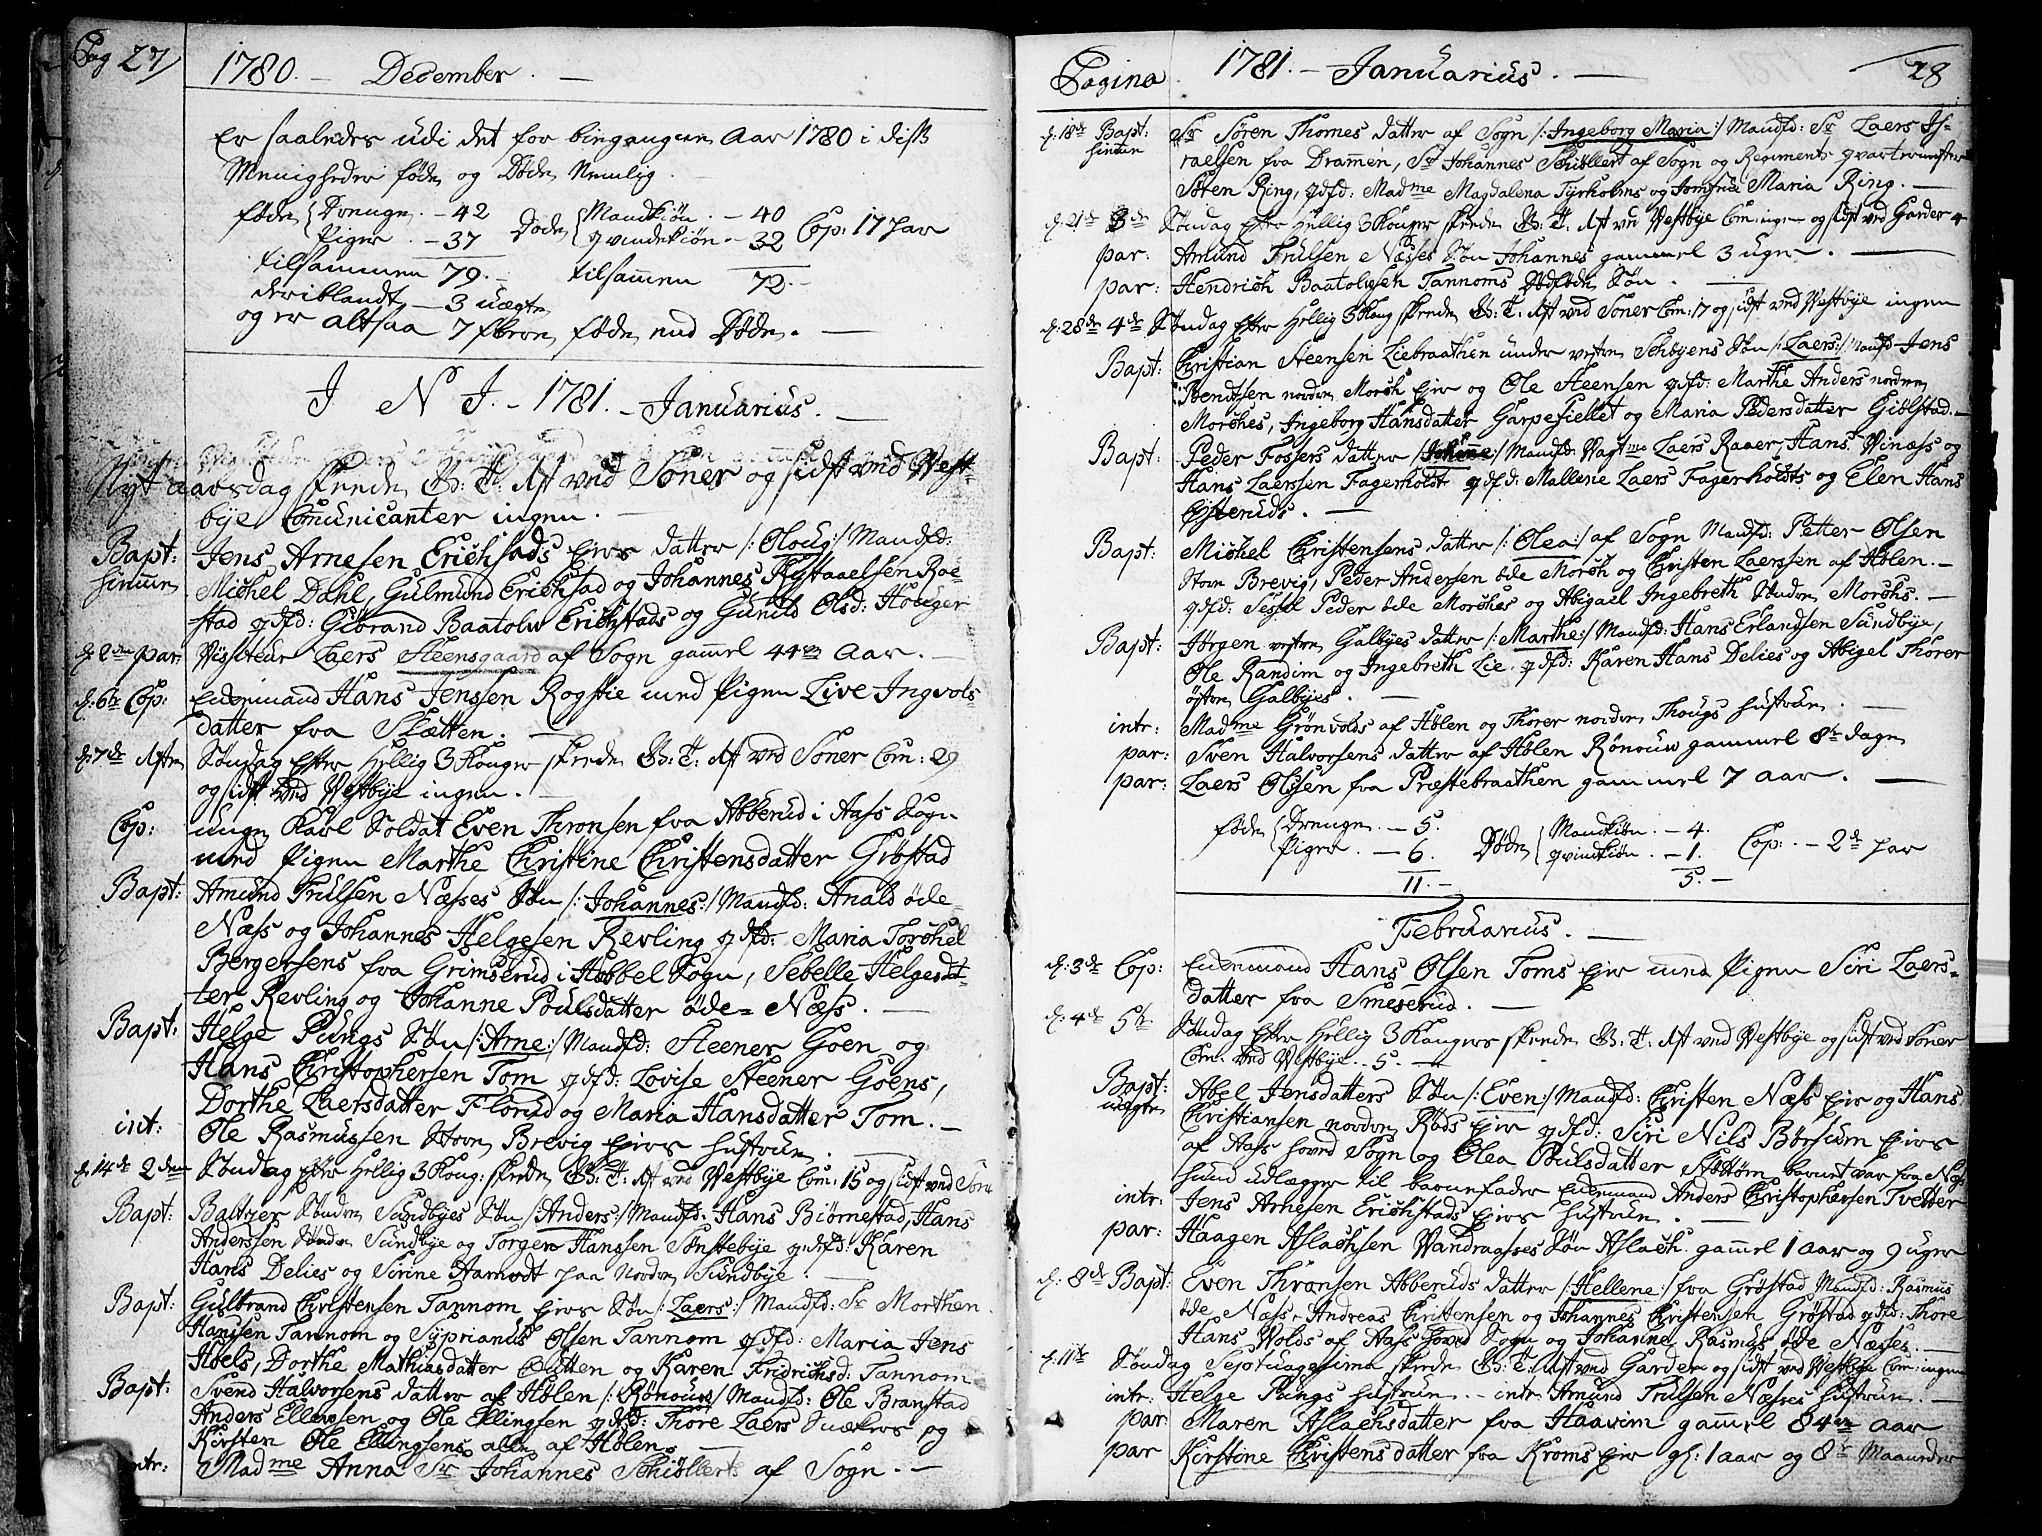 Pag 27
1780. - December. -
Er saaledes udi det for bingangen Aar 1780 i diss
Menigheder føde og Døde Nemlig.
føde Drenge. - 42 Døde Mandkiøn. - 40 Cop: 17 Par
Piger. - 37 qvindekiøn - 32
tilsammen 79. - tilsamen 72. -
deriblandt - 3 uægte
og er altsaa 7 flere føde end Døde. -
I N J. - 1781. - Januarius. -
Nyt aarsdag skrede G: T: Ast ved Soner og sidst ved Vest-
bye Communicanter ingen. -
Bapt: Jens Arnesen Erichstads Eier datter /:Oloug:/ Mandfd:
hiemme Michel Dahl, Gulmund Erichstad og Johannes Rystaaelsen Roe-
stad qdfd: Gibrand Baatolw Erichstads og Gunild Olsd: Houger
d: 2den par: Visiteur Laers Steensgaard af Sogn gamel 44 Aar. -
d: 6te Cop: Enkemand Hans Jenssen Rogstie med Pigen Live Ingvols
datter fra Skætten. -
d: 7de Søndag Efter Hellig 3 Konger skrede G: T: Ast ved Soner Com: 29
og sidst ved Vestbye ingen. -
Cop: unge Karl Soldat Even Thronsen fra Abberud i Aass Sogn
med Pigen Marthe Christine Christensdatter Grøstad
Bapt: Amund Trulsen Næsses Søn /:Johannes:/ Mandfd: Anald øde
Næss og Johannes Helgesen Revling qdfd: Maria Torchel
Bergersens fra Grimserud i Haabbel Sogn, Sebelle Helgesdat-
ter Revling og Johanne Poulsdatter øde= Næss. -
Bapt: Helge Pungs Søn /:Arne:/ Mandfd: Steener Goen og
Hans Christophersen Tom qdfd: Lovise Steener Goens,
Dorthe Laersdatter Florud og Maria Hansdatter Tom. -
int: Ole Rasmussen Store Brevig Eiers hustrue. -
d: 14de 2den Søndag Efter Hellig 3 Kong: skrede G: T: Ast ved Vestbye Com: 15 og sidst ved Sone
Bapt: Baltzer Søndre Sundbyes Søn /:Anders:/ Mandfd: Hans Biørnestad, Hans
Anderssen Søndre Sundbye og Torgen Hanssen Sønstebye qdfd: Karen
Hans Delies og Sirine Hamodt paa Nordre Sundbye. -
Bapt: Gulbrand Christensen Tannom Eiers Søn /:Laers:/ Mandfd: Sr Morthen
Hansen Tannom og Syprianus Olssen Tannom qdfd: Maria Jens
Hoels, Dorthe Mathiasdatter Cutten og Karen Fridrichsd: Tannom
Bapt: Svend Halvorsens datter af Hølen /:Rønouw:/ Mandfd: Ole Branstad
Anders Ellewsen og Ole Ellingsen qdfd: Thore Laers Snækers og
Kirsten Ole Ellingsens alle af Hølen. -
intr: Madme Anna Sr Johannes Schiøllerts af Sogn. -
Pagina 1781. - Januarius. - 28
d: 18de Bapt: Sr Sören Thomes datter af Sogn /:Ingeborg Maria:/ Mandfd: Sr Laers Is-
hiemme raelsen fra Drammen, Sr Johannes Schiøllert af Sogn og Regiments qvarteermester
Søren Ring, qdfd: Madme Magdalena Tyrholms og Jomfrue Maria Ring. -
d: 21de 3de Søndag Efter Hellig 3 Konger skrede G: T: Ast ved Vestbye Com: ingen og sidst ved Garder 4
par: Amund Trulsen Næsses Søn Johannes gammel 3 uger. -
par: Hendrich Baatolvsen Tannoms dødføde Søn. -
d: 28de 4de Søndag Efter Hellig 3 Kong: skrede G: T: Ast ved Soner Com: 17 og sidst ved Vestbye ingen
Bapt: Christian Steensen Liebraathen under vestre Schöyens Søn /:Laers:/ Mandfd: Jens
Bendtsen nordre Morch Eier og Ole Steensen qdfd: Marthe Anders nordre
Morches, Ingeborg Hansdatter Garpefiellet og Maria Pedersdatter Giölstad. -
Bapt: Peder Fossers datter /:Johanne:/ Mandfd: Vagtme Laers Raaer, Hans Vinæss og
Hans Laerssen Fagerholdt qdfd: Mallene Laers Fagerholdts og Elen Hans
Østeruds. -
Bapt: Michel Christensens datter /:Olea:/ af Sogn Mandfd: Petter Olsen
Store Brevig, Peder Andersen öde Morch og Christen Laerssen af Hölen. -
qdfd: Sessel Peder öde Morches og Abigael Ingebreth Søndre Morchs. -
Bapt: Jørgen vestre Galbyes datter /:Marthe:/ Mandfd: Hans Erlandsen Sundbye,
Ole Randim og Ingebreth Lie, qdfd: Karen Hans Delies og Abigel Thorer
östre Galbyes. -
intr: Madme Grønvolds af Hölen og Thorer nordre Thougs hustrue. -
par: Sven Halvorsens datter af Hölen Rönouw gammel 8te dage
par: Laers Olssen fra Præstebraathen gammel 7 aar. -
føde Drenge. - 5. Døde Mandkiøn. - 4. Cop: - 2de Par
Piger. - 6. qvindkiøn. - 1.
11. - 5. -
Februarius. -
d: 3de Cop: Enkemand Hans Olsen Toms Eier med Pigen Siri Laers-
datter fra Smeserud. -
d: 4de 5te Søndag Efter Hellig 3 Kongers skrede G: T: Ast ved Vestbye og sidst ved Soner
Com: ved Vestbye. 5. -
Bapt: Abel Jensdatters Søn /:Even:/ Mandfd: Christen Næss Eier og Hans
uægte Christiansen nordre Röds Eier qdfd: Siri Nils Börsum Eiers
af Aass hoved Sogn og Olea Poulsdatter Støttøm, barnet var fra Næss
hund udlægger til barnefader Enkemand Anders Christophersen Tvetter
intr: Jens Arnesen Erichstads Eiers hustrue. -
par: Haagen Aslachsen Vandragsses Søn Aslach gamel 1 aar og 9 uger
d: 8de Bapt: Even Thronsen Abberuds datter /:Hellene:/ fra Grøstad Mandfd: Rasmus
öde Næss, Andreas Christensen og Johannes Christensen Grøstad qdfd: Thore
Hans Wolds af Aass hoved Sogn og Johanne Rasmus öde Næsses. -
d: 11te Søndag Septuagesima skrede G: T: Ast ved Garder og sidst ved Vestbye Com: ingen
intr: Helge Pungs hustrue. - intr: Amund Trulsen Næsses hustrue. -
par Maren Aslachsdatter fra Haavim gamel 84 aar
par Kirstene Christensdatter fra Kroms Eier gl: 1 aar og 8te Maaneder